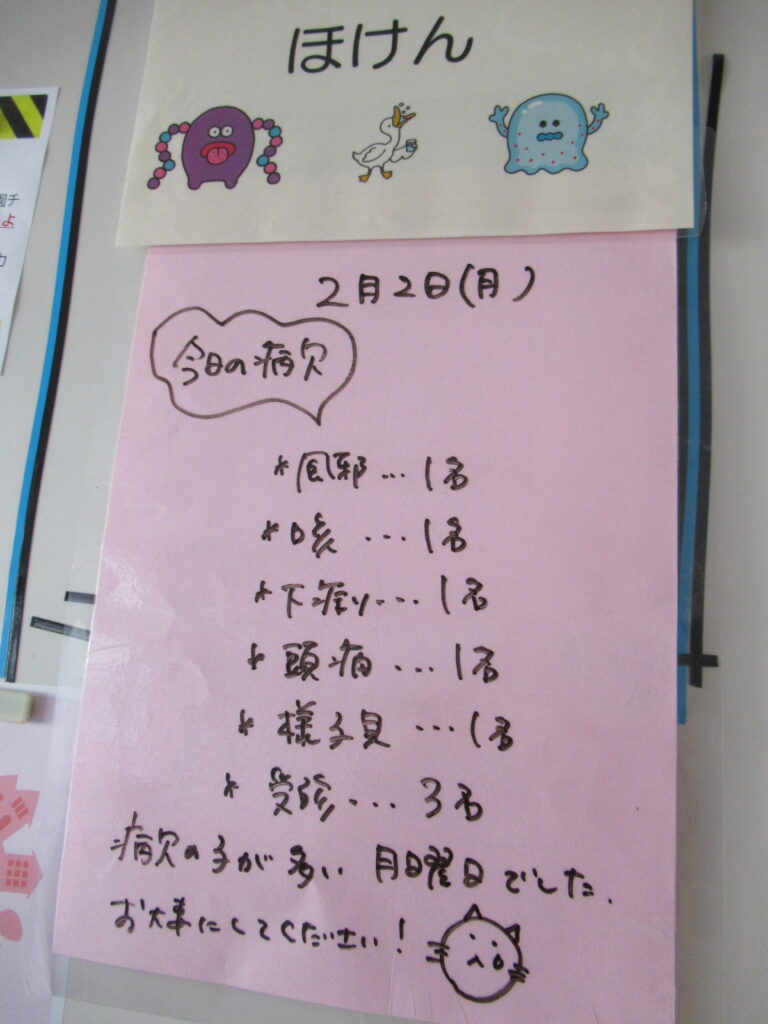 ほけん
園チ
よ
カ
2月2日(月)
今日の病欠
*風邪...1名
*咳 ...1名
*下痢り...1名
*頭痛...1名
*様子見 ...1名
*受診...3名
病欠の子が多い 月曜日でした.
お大事にしてください!